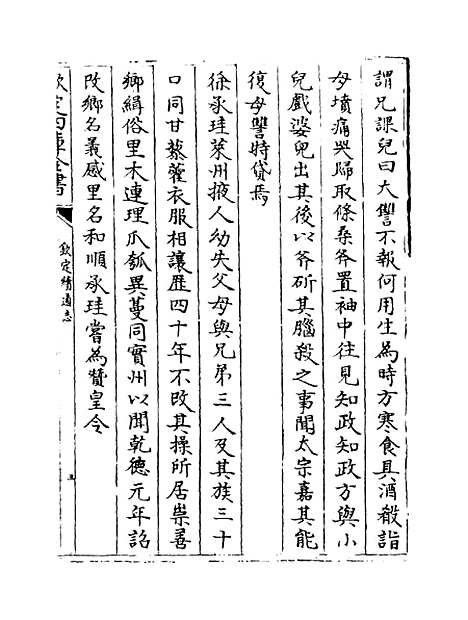 謂兄課兒曰大讐不報何用生為時方寒食具酒殽詣
母墳痛哭歸取條桑斧置袖中往見知政知政方與小
兒戲婆兒出其後以斧斫其腦殺之事聞太宗嘉其能
復母讐特貸焉
徐承珪萊州掖人幼失父母與兄弟三人及其族三十
口同甘藜藿衣服相讓歷四十年不改其操所居崇善
鄉緝俗里木連理瓜瓠異蔓同實州以聞乾德元年詔
改鄉名義感里名和順承珪嘗為贊皇令
欽定四庫全書
欽定續通志